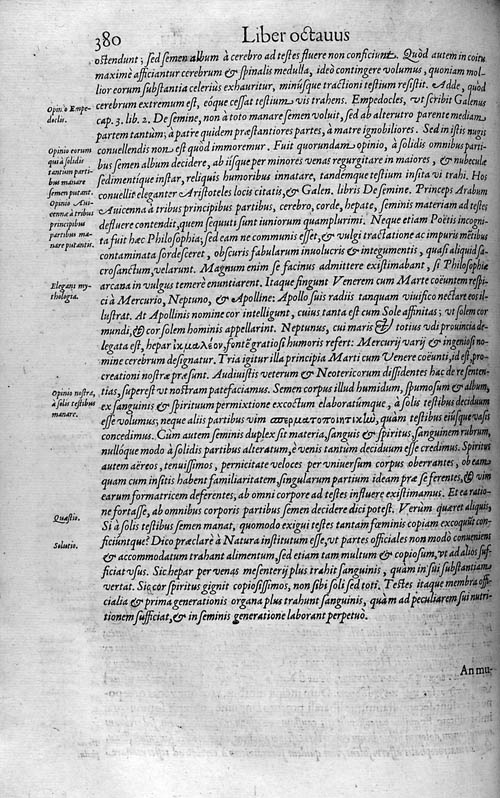 380
Liber octauus
ostendunt; sed semen album à cerebro ad testes fluere non conficiunt. Quòd autem in coitu
maximè afficiantur cerebrum & spinalis medulla, ideò contingere volumus, quoniam mol-
lior eorum substantia celeriùs exhauritur, minúsque tractioni testium resistit. Adde, quòd
cerebrum extremum est, eóque cessat testium vis trahens. Empedocles, vt scribit Galenus
cap. 3. lib. 2. De semine, non à toto manare semen voluit, sed ab alterutro parente mediam
partem tantùm; à patre quidem præstantiores partes, à matre ignobiliores. Sed in istis nugis
conuellendis non est quòd immoremur. Fuit quorundam opinio, à solidis omnibus parti-
bus semen album decidere, ab iísque per minores venas regurgitare in maiores, & nubeculæ
sedimentíque instar, reliquis humoribus innatare, tandemque testium insita vi trahi. Hos
conuellit eleganter Aristoteles locis citatis, & Galen. libris De semine. Princeps Arabum
Auicenna à tribus principibus partibus, cerebro, corde, hepate, seminis materiam ad testes
defluere contendit, quem sequuti sunt iuniorum quamplurimi. Neque etiam Poëtis incogni-
ta fuit hæc Philosophia; sed eam ne communis esset, & vulgi tractatione ac impuris mētibus
contaminata sordesceret, obscuris fabularum inuolucris & integumentis, quasi aliquid sa-
crosanctum, velarunt. Magnum enim se facinus admittere existimabant, si Philosophiæ
arcana in vulgus temerè enuntiarent. Itaque fingunt Venerem cum Marte coëuntem respi-
ci à Mercurio, Neptuno, & Apolline: Apollo suis radiis tanquam viuifico nectare eos il-
lustrat. At Apollinis nomine cor intelligunt, cuius tanta est cum Sole affinitas; vt solem cor
mundi, & cor solem hominis appellarint. Neptunus, cui maris & totius vdi prouincia de-
legata est, hepar ἰκμαλέον, fontē gratiosi humoris refert: Mercurij varij & ingeniosi no-
mine cerebrum designatur. Tria igitur illa principia Marti cum Venere coëunti, id est, pro-
creationi nostræ præsunt. Audiuistis veterum & Neotericorum dissidentes hac de re senten-
tias, superest vt nostram patefaciamus. Semen corpus illud humidum, spumosum & album,
ex sanguinis & spirituum permixtione excoctum elaboratúmque, à solis testibus deciduum
esse volumus; neque aliis partibus vim σπερματοποιητικὼ, quàm testibus eiúsque vasis
concedimus. Cùm autem seminis duplex sit materia, sanguis & spiritus, sanguinem rubrum,
nullóque modo à solidis partibus alteratum, è venis tantùm deciduum esse credimus. Spiritus
autem aëreos, tenuissimos, pernicitate veloces per vniuersum corpus oberrantes, ob eam
quam cum insitis habent familiaritatem, singularum partium ideam præ se ferentes, & vim
earum formatricem deferentes, ab omni corpore ad testes influere existimamus. Et ea ratio-
ne fortasse, ab omnibus corporis partibus semen decidere dici potest. Verùm quæret aliquis,
Si à solis testibus semen manat, quomodo exigui testes tantam seminis copiam excoquūt con-
ficiúntque? Dico præclarè à Natura institutum esse, vt partes officiales non modò conueniens
& accommodatum trahant alimentum, sed etiam tam multum & copiosum, vt ad alios suf-
ficiat vsus. Sic hepar per venas mesenterij plus trahit sanguinis, quàm in sui substantiam
vertat. Sic cor spiritus gignit copiosissimos, non sibi soli sed toti. Testes itaque membra offi-
cialia & prima generationis organa plus trahunt sanguinis, quàm ad peculiarem sui nutri-
tionem sufficiat, & in seminis generatione laborant perpetuo.
An mu-
Opinio Empe-
doclis.
Opinio eorum
qui à solidis
tantùm parti-
bus manare
semen putant.
Opinio Aui-
cennæ à tribus
principibus
partibus ma-
nare putantis.
Elegans my-
thologia.
Opinio nostra,
à solis testibus
manare.
Quæstio.
Solutio.